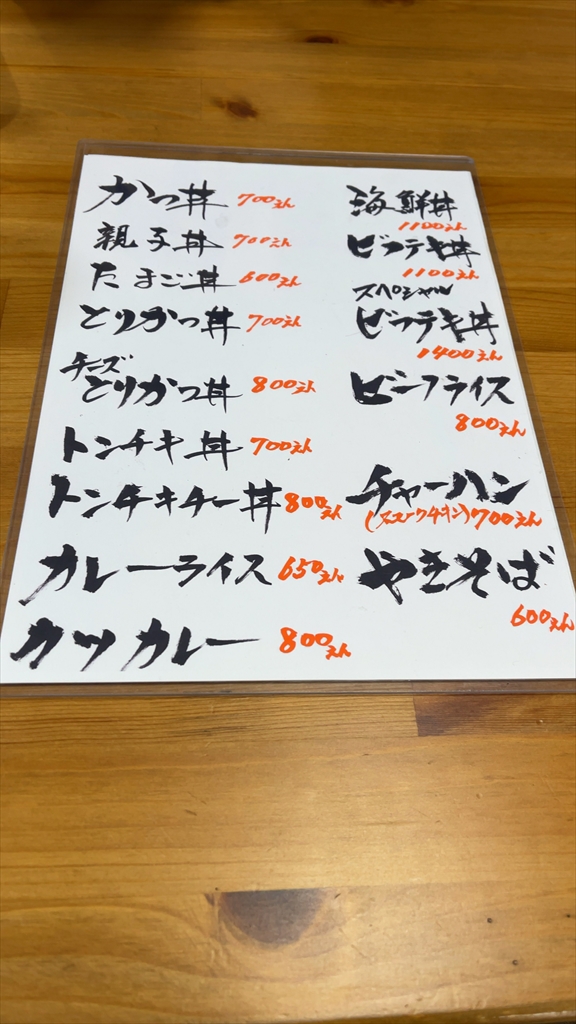 かつ丼 700えん
親子丼 700えん
たまご丼 600えん
とりかつ丼 700えん
チーズ
とりかつ丼 800えん
トンチキ丼 700えん
トンチキチー丼 800えん
カレーライス 650えん
カツカレー 800えん
海鮮丼
1100えん
ビフテキ丼
1100えん
スペシャル
ビフテキ丼
1400えん
ビーフライス
800えん
チャーハン
(スモークチキン)700えん
やきそば
600えん